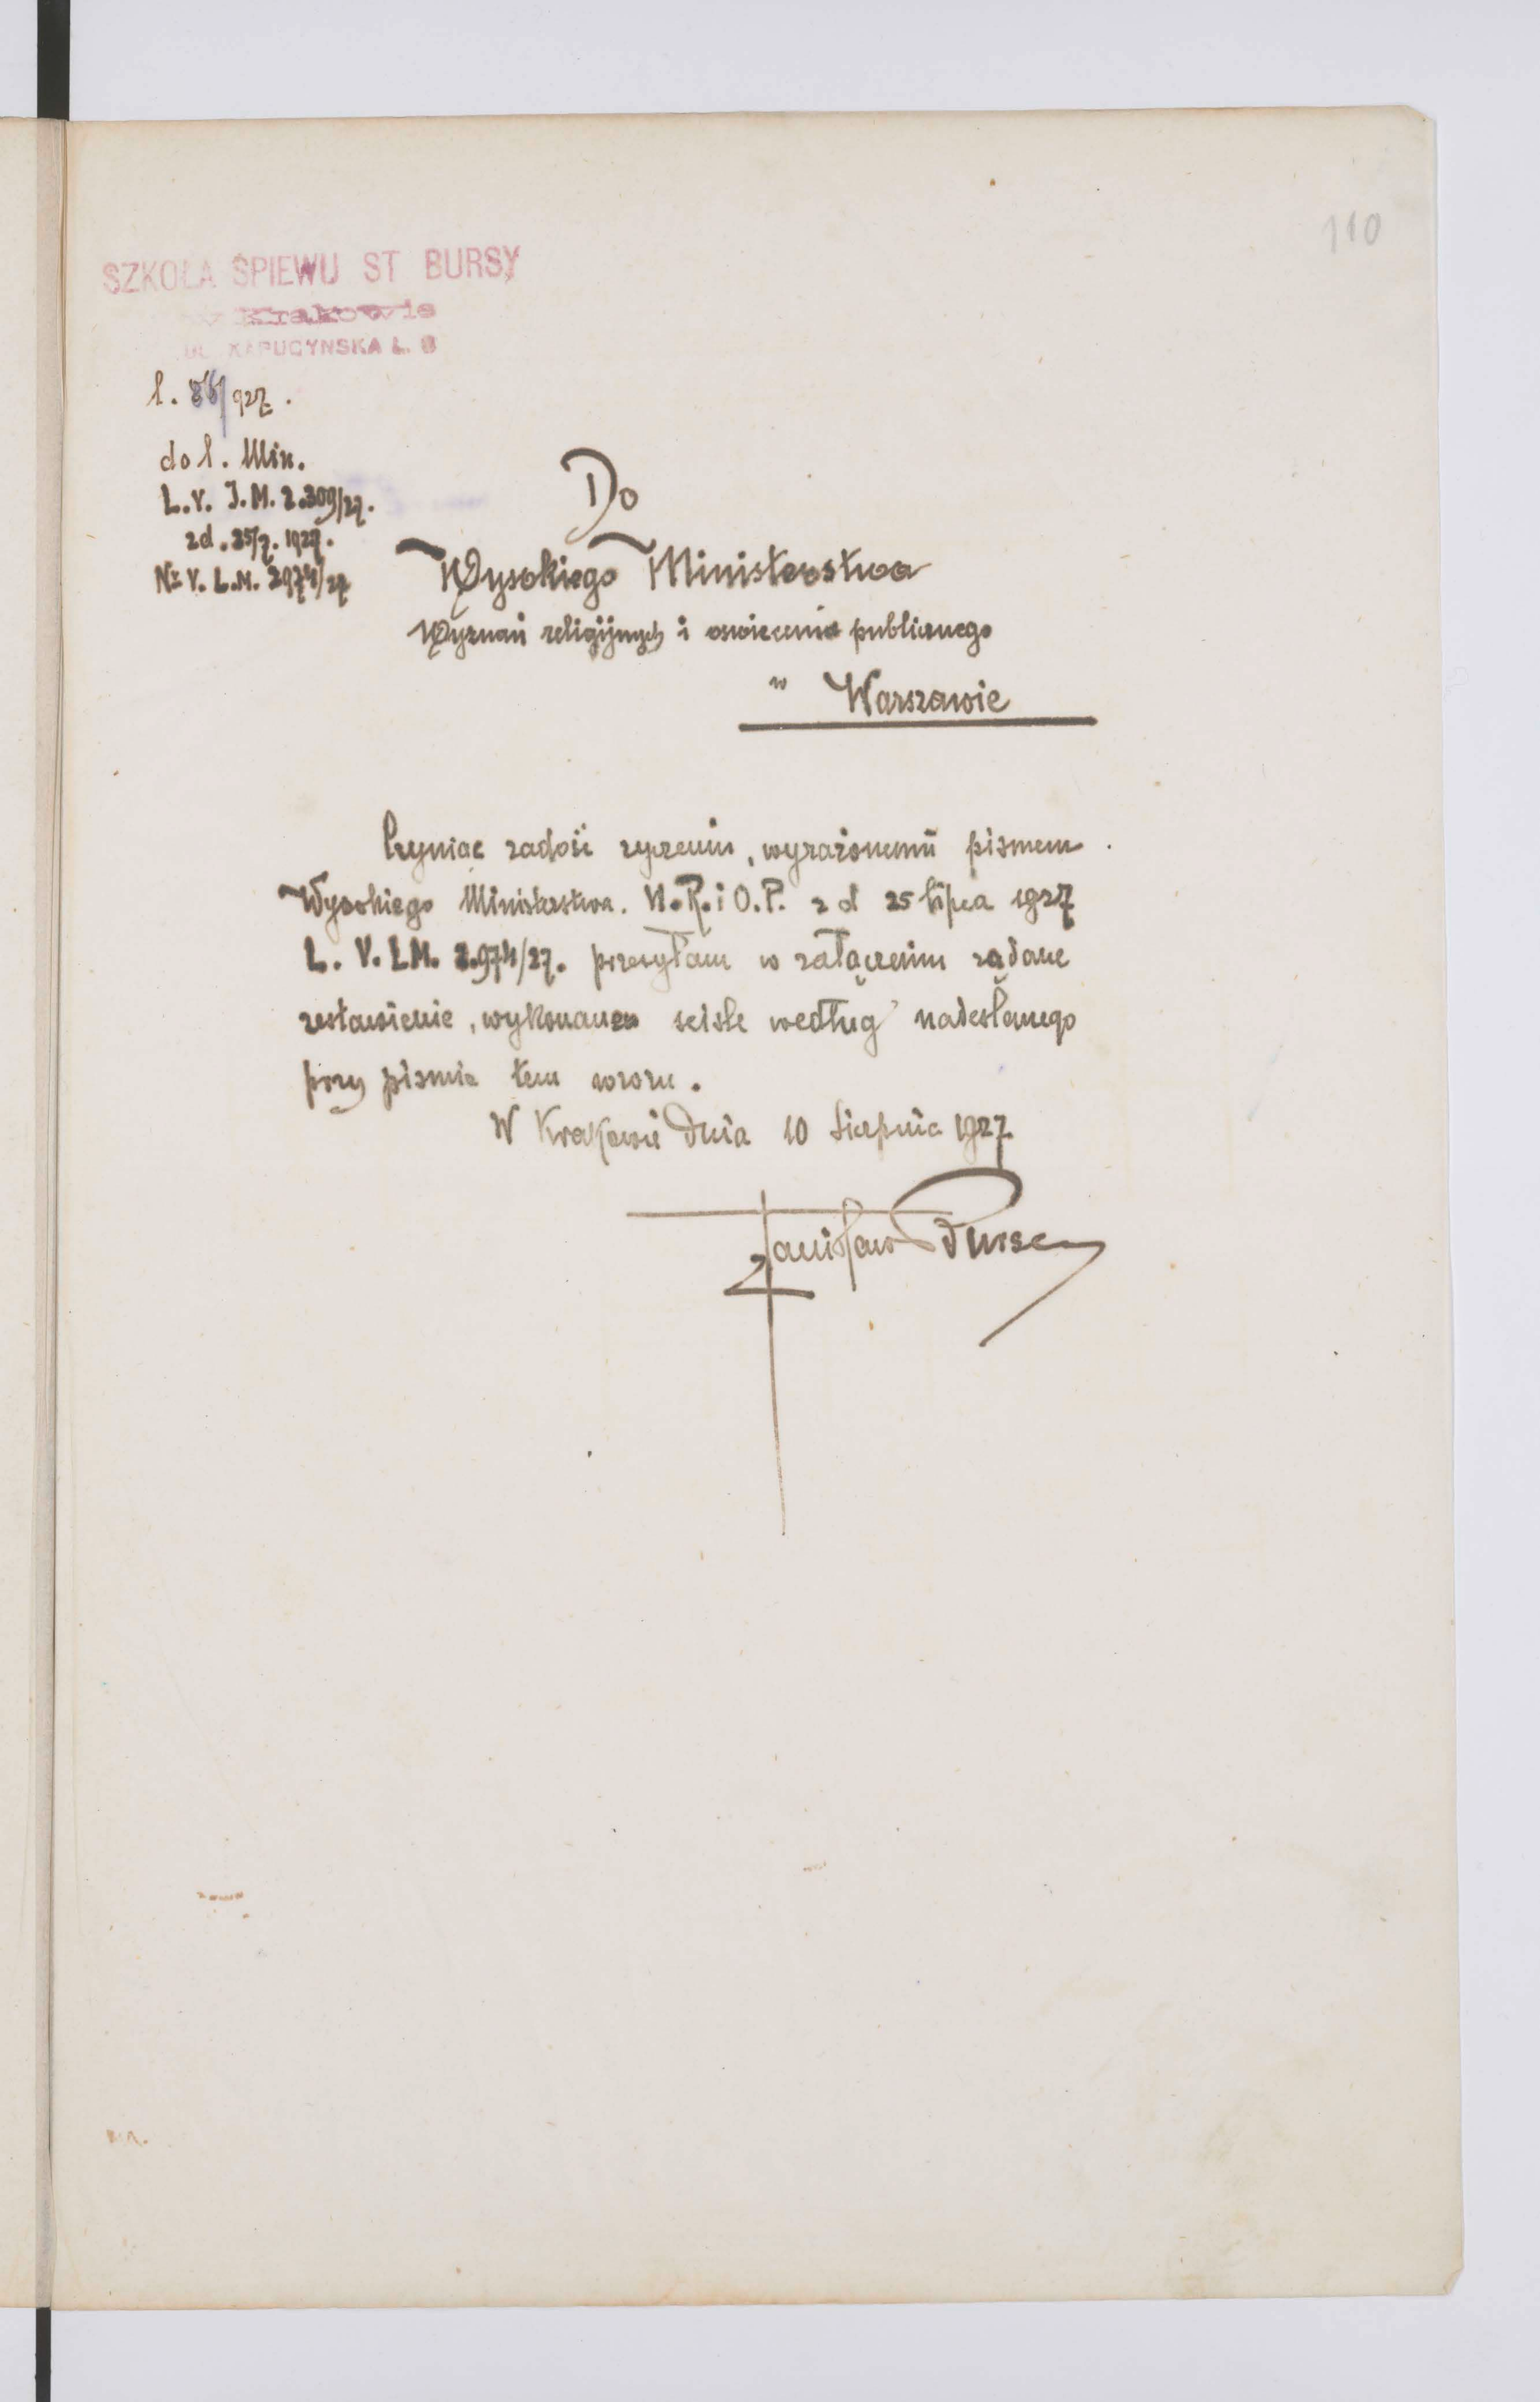 110
SZKOŁA ŚPIEWU ST BURSY
w Krakowie
UL. KAPUCYNSKA L.
l. 86/927.
do l. Min.
L. V. J. M. 2.309/27.
z d. 25/7. 1927.
Nr V. L. M. 2974/27
Do
Wysokiego Ministerstwa
Wyznań religijnych i oswiecenia publicznego
w Warszawie
Czyniąc zadość zyczeniu, wyrażonemu pismem
Wysokiego Ministerstwa. W. R. i O. P. z d 25 lipca 1927
L. V. L M. 2.974/27. przesyłam w załączeniu żądane
zestawienie, wykonane scisle według nadesłanego
przy pismie tem wzoru.
W Krakowie dnia 10 Sierpnia 1927
Stanisław Bursa